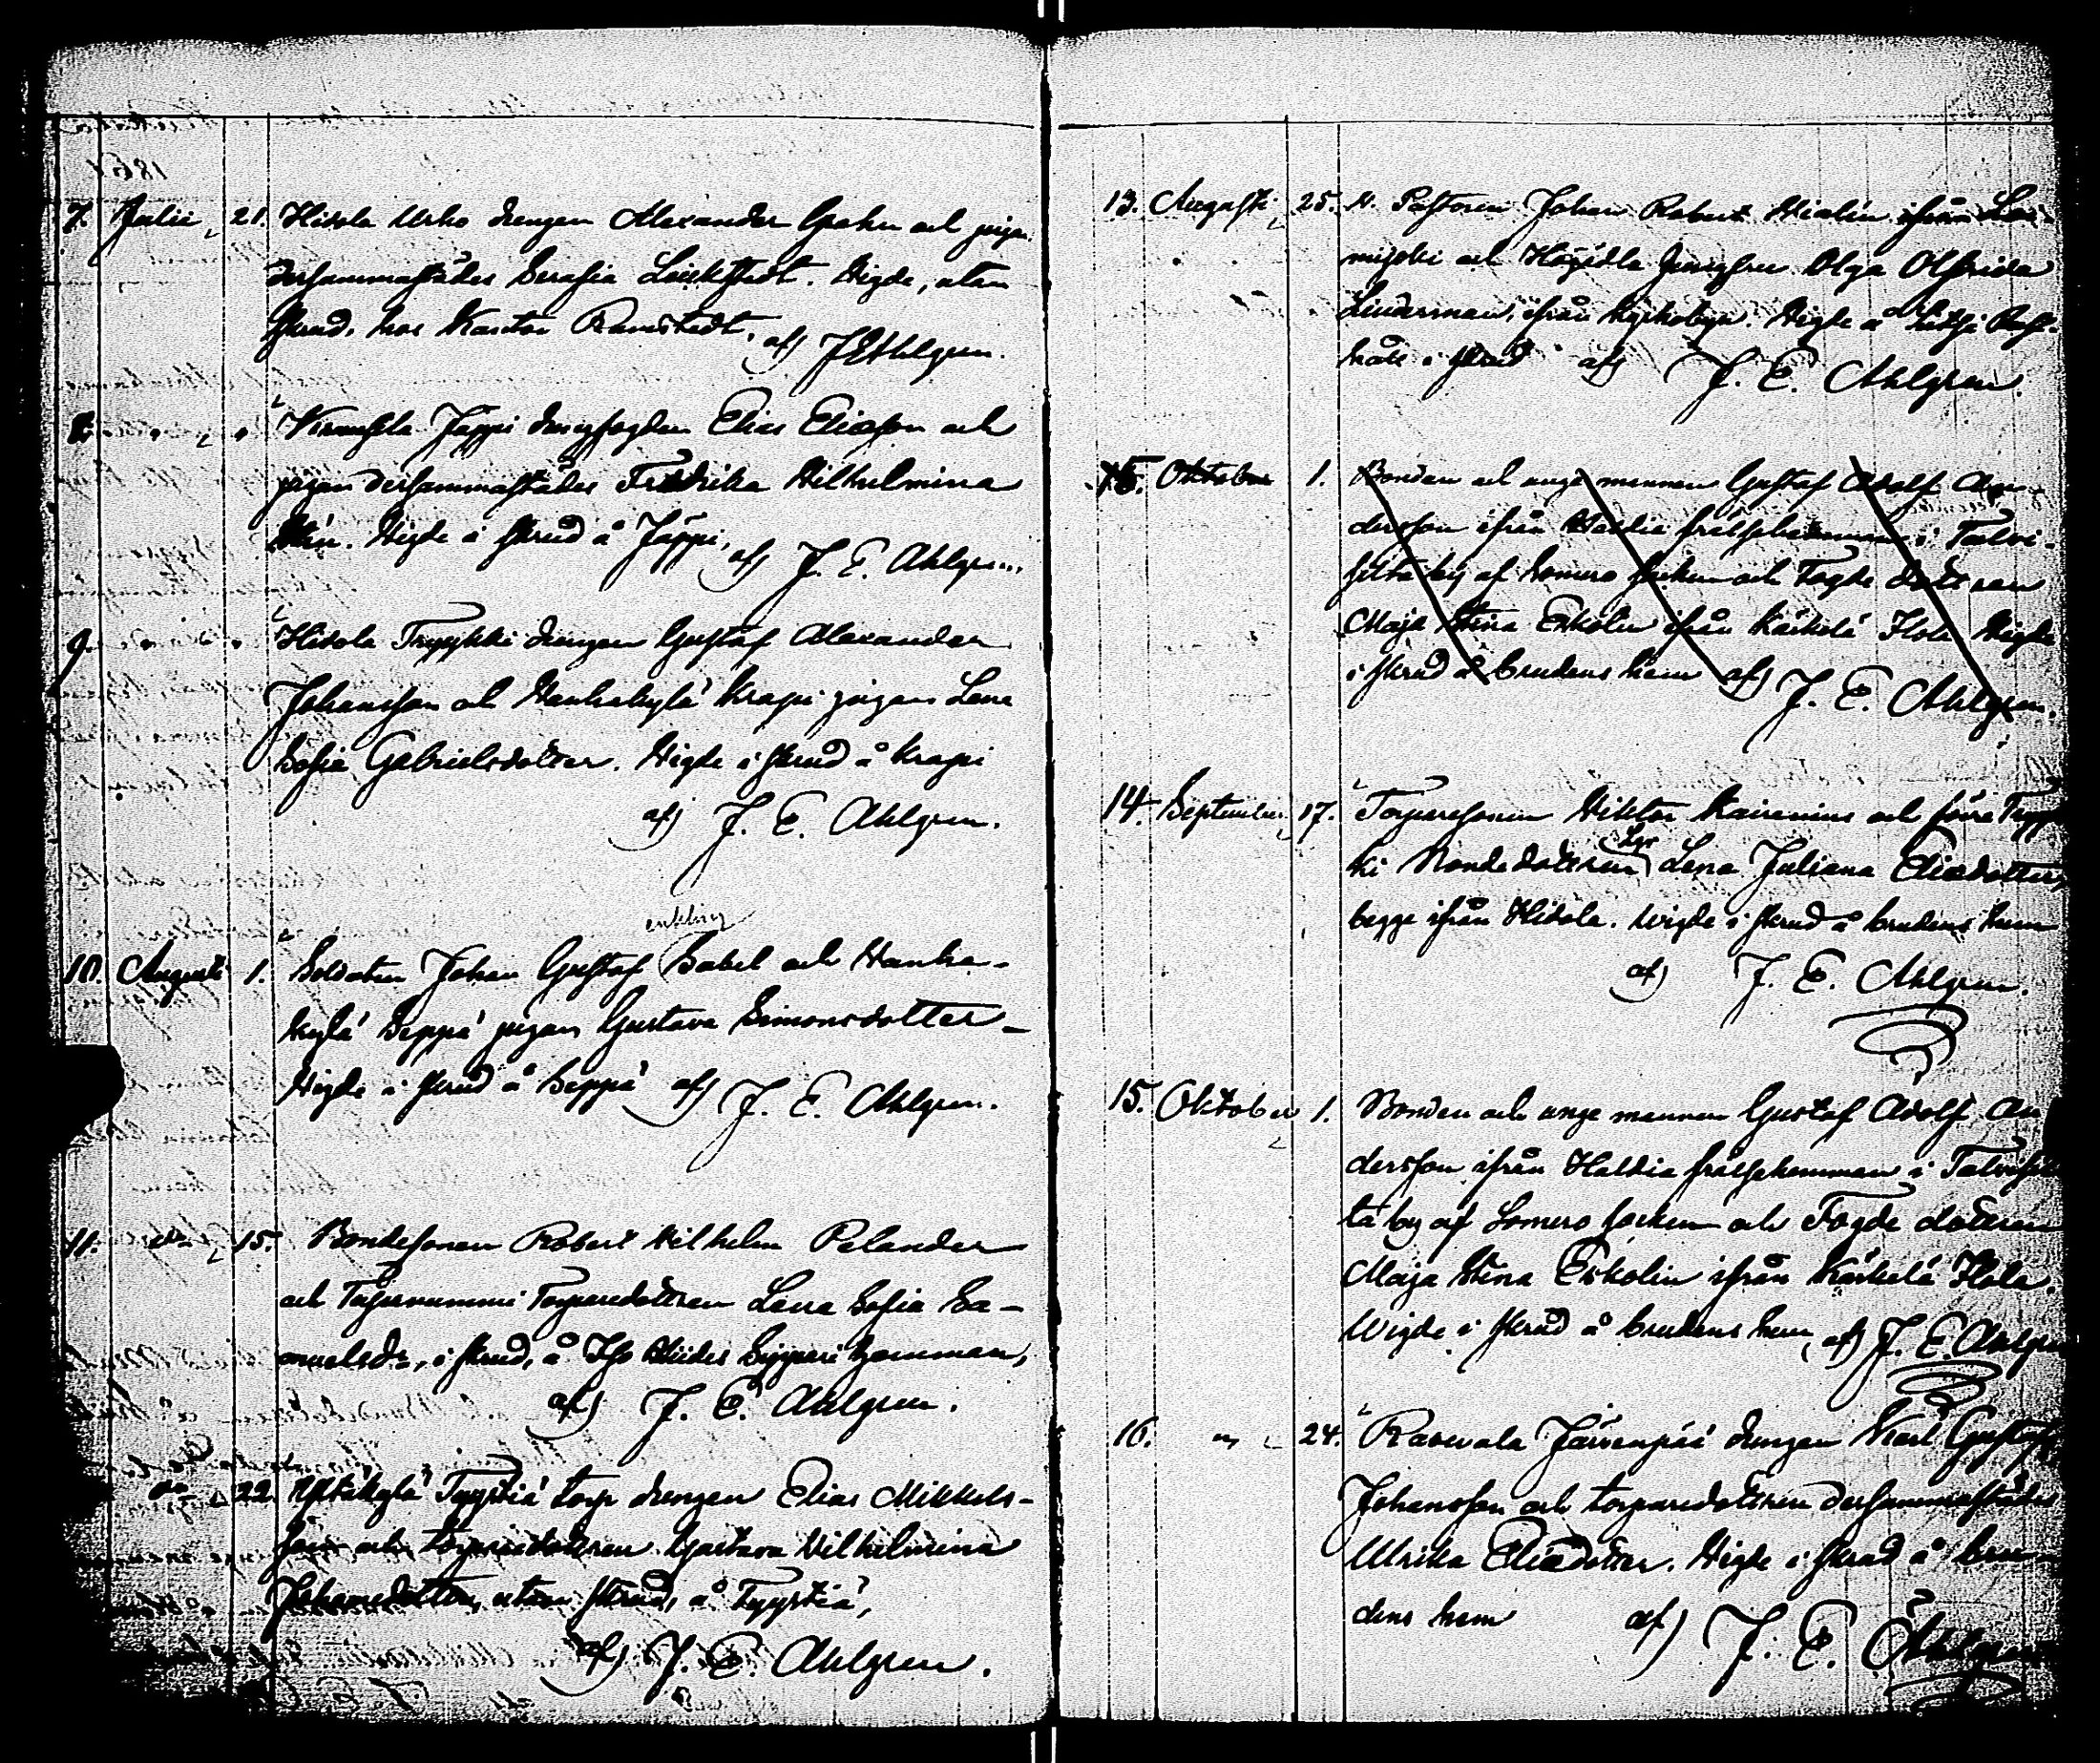 7. Julii 21. Hirola Urho drengen Alexander Grahn och pigan
dersammastädes Serafia Leistedt. Vigde, utan
skrud, hos Kantor Ramstedt, af) J E Ahlgren.
8. " " Jäppi drengfogden Elias Eliasson och
pigan dersammastädes Fredrika Wilhelmina
Vigde i skrud å Jäppi, af) J. E. Ahlgren.
9. " " Hirola Tryykki drengen Gustaf Alexander
Johansson och Hauhakylä Krapi pigan Lena
Sofia Gabrielsdotter. Vigde i skrud å Krapi
af) J. E. Ahlgren.
enkling
10. Augusti 1. Soldaten Johan Gustaf Sabel och Hauha-
kylä Seppä pigan Gustava Simonsdotter –
Vigde i skrud å Seppä af) J. E. Ahlgren.
11. 15. Bondesonen Robert Wilhelm Pelander
och Torparedottren Lena Sofia Sa-
muelsdr, i skrud, å hemman,
af) J. E. Ahlgren.
22. Tyystiä torp drengen Elias Mikkels-
son och torparedottren Gustava Wilhelmina
Johansdotter, utan skrud, å Tyystiä,
af) J. E. Ahlgren.
13. Augusti 25. Pastoren Johan Robert ifrån Loi-
mijoki och Högädla Jungfru Olga Olfrida
Linderman, ifrån Kyrkobyn. Vigde å
i skrud af J. E. Ahlgren.
15. Oktober 1. Bonden och unge mannen Gustaf Adolf An-
dersson ifrån Haldia frälsehemman i Talvi-
silta by af Somero socken och Fogde dottren
Maja Stina Eskolin ifrån Kärkelä Hola Vigde
i skrud å brudens hem af) J. E. Ahlgren.
14. September 17. Torparesonen Viktor Kairenius och förra Tryyk-
ki Bondedottren Lena Juliana Eliædotter,
begge ifrån Hirola. Wigde i skrud å brudens hem
af) J. E. Ahlgren.
15. Oktober 1. Bonden och unge mannen Gustaf Adolf An
dersson ifrån Haldia frälsehemman i Talvisil
ta by af Somero socken och Fogde dottren
Maja Stina Eskolin ifrån Kärkelä Hola.
Wigde i skrud å brudens hem, af) J. E. Ahlgren
16. " 24. Järvenpää drengen Karl Gustaf
Johansson och torparedottren dersammastädes
Ulrika Eliædotter. Vigde i skrud å bru-
dens hem af) J. E. Ahlgren